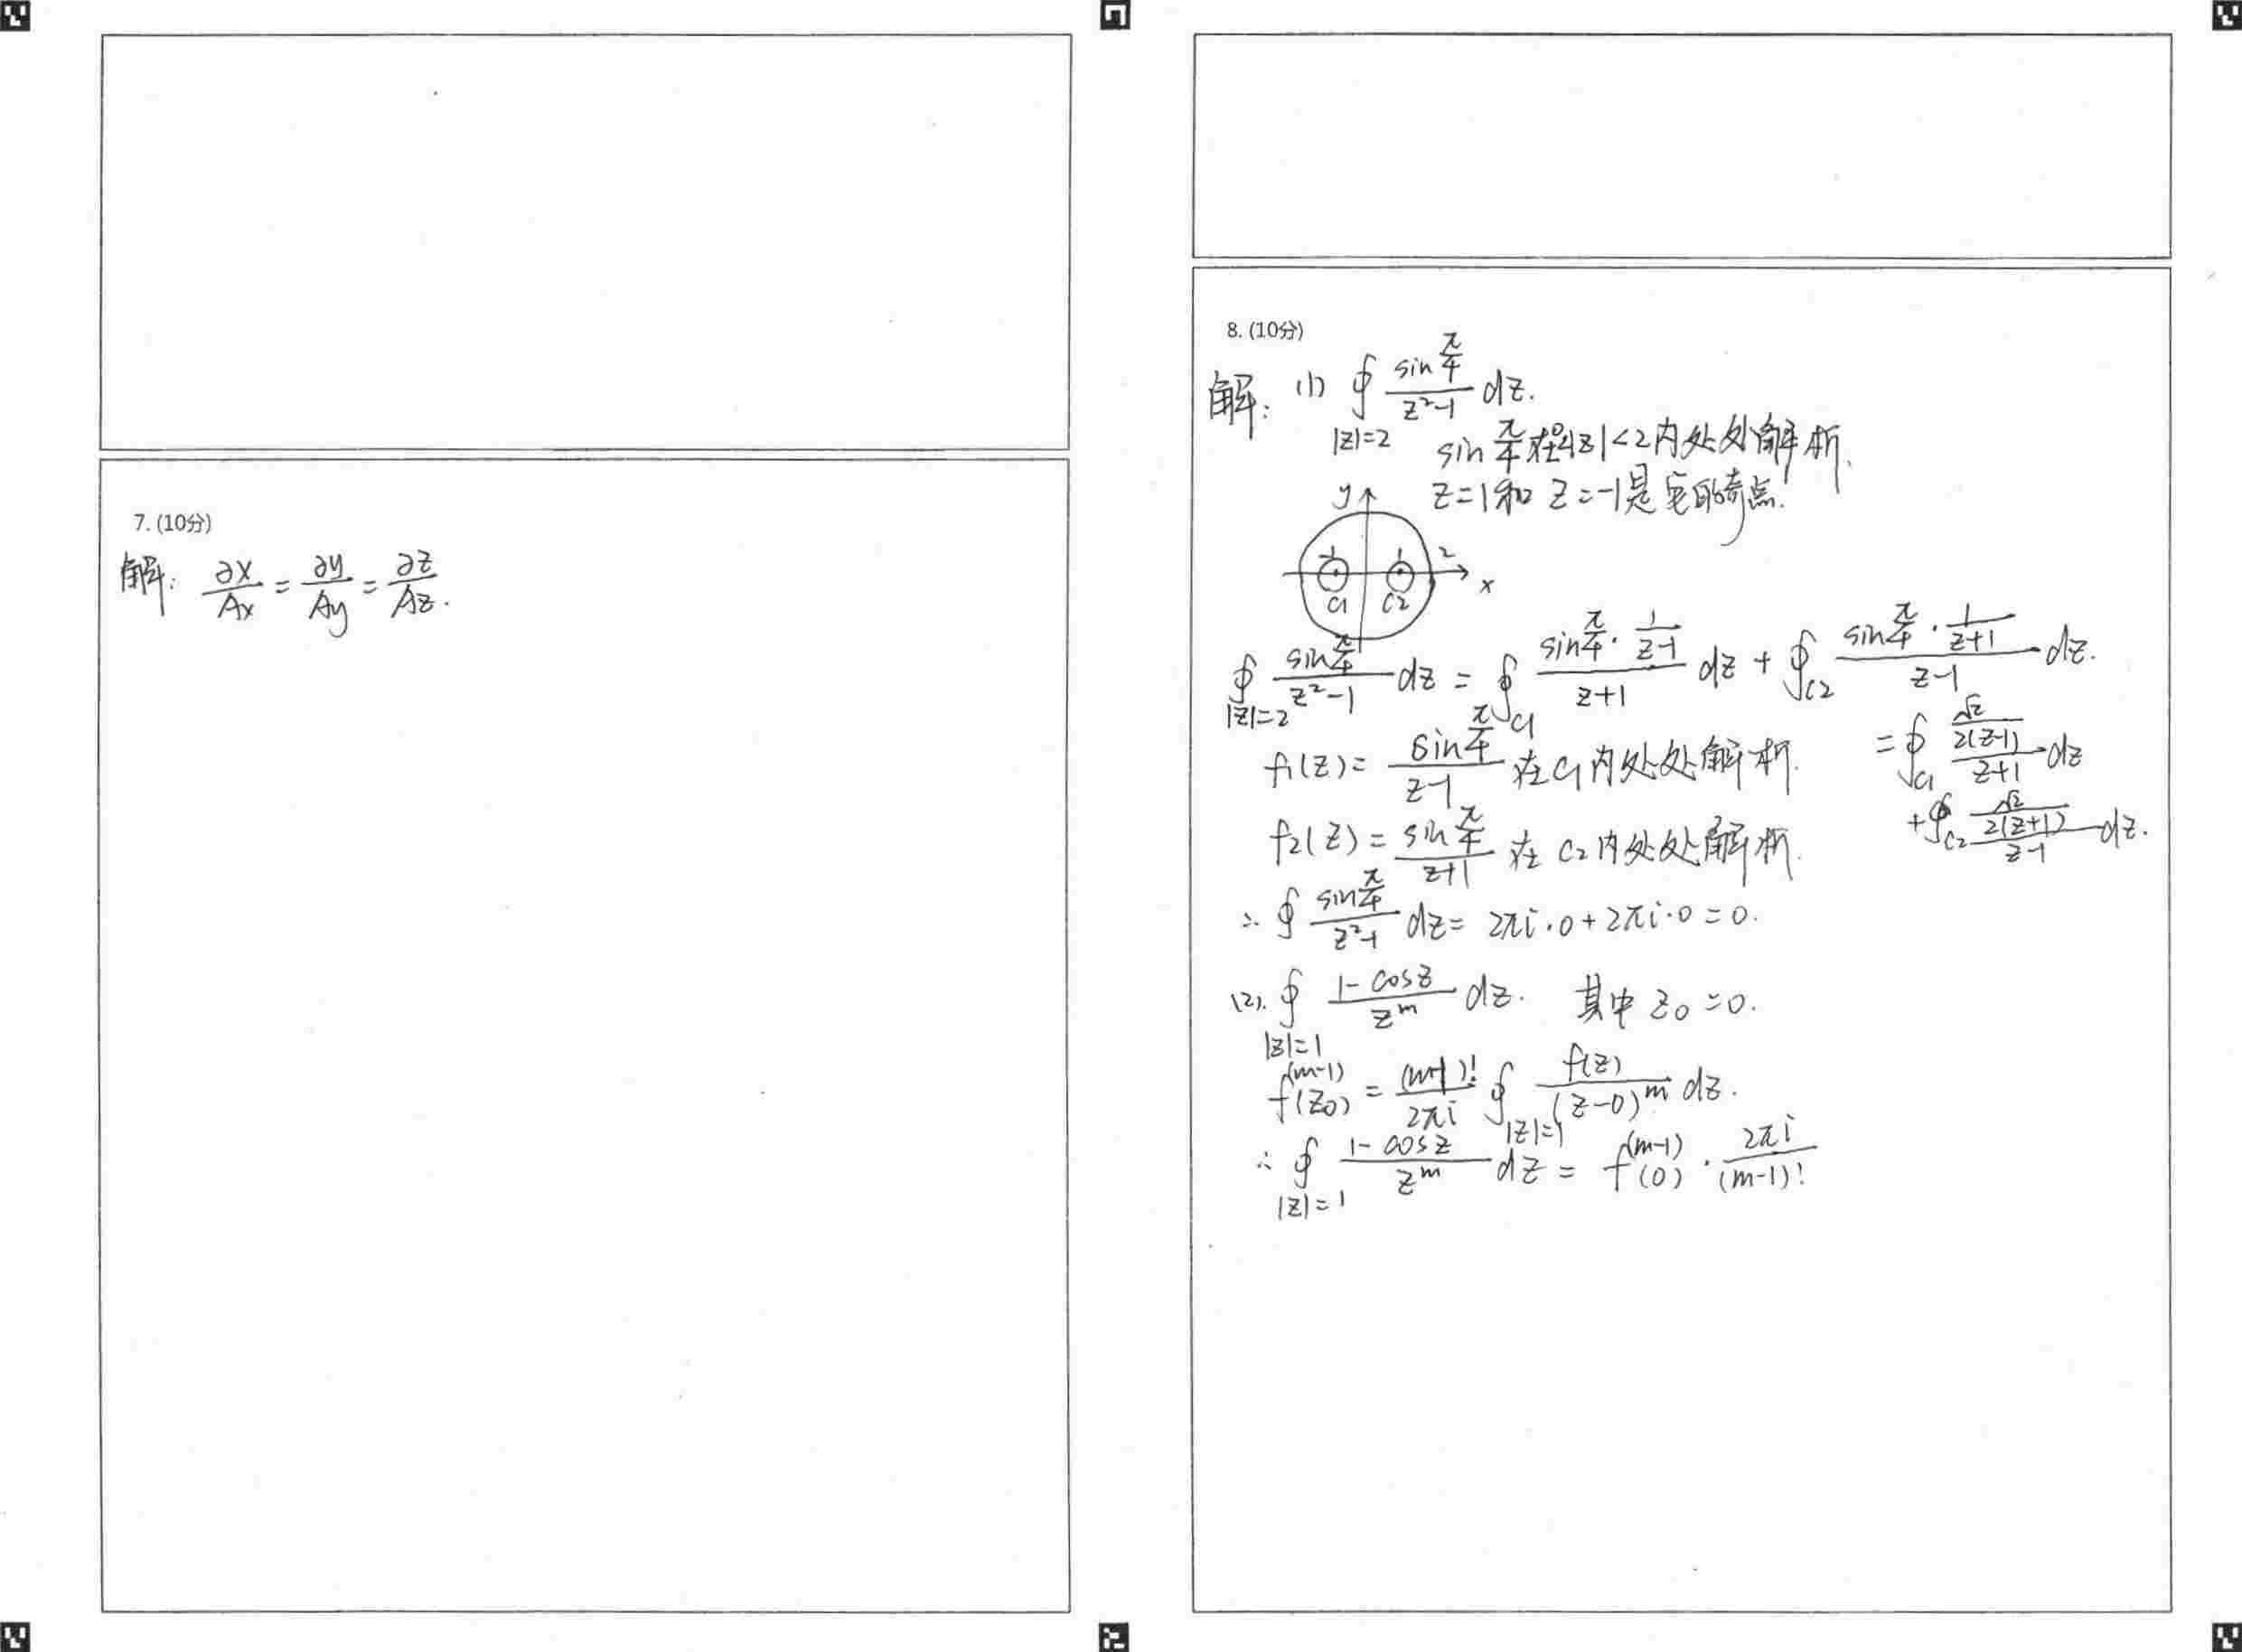 7. (10分)
解: ∂x/Ax = ∂y/Ay = ∂z/Az.
8. (10分)
解: (1) ∮|z|=2 sin π/4 / z²-1 dz.
sin π/4 在|z|<2内处处解析.
z=1和 z=-1是它的奇点.
y
-1 1 2
x
C1 C2
∮|z|=2 sin π/4 / z²-1 dz = ∮C1 sin π/4 · 1/z-1 / z+1 dz + ∮C2 sin π/4 · 1/z+1 / z-1 dz.
= ∮C1 √2/2(z-1) / z+1 dz
+ ∮C2 √2/2(z+1) / z-1 dz.
f1(z) = sin π/4 / z-1 在C1内处处解析.
f2(z) = sin π/4 / z+1 在 C2内处处解析.
∴ ∮ sin π/4 / z²-1 dz = 2πi·0+2πi·0=0.
(2). ∮|z|=1 1-cosz / z^m dz. 其中 z0=0.
f^(m-1)(z0) = (m-1)! / 2πi ∮|z|=1 f(z) / (z-0)^m dz.
∴ ∮|z|=1 1-cosz / z^m dz = f^(m-1)(0) · 2πi / (m-1)!